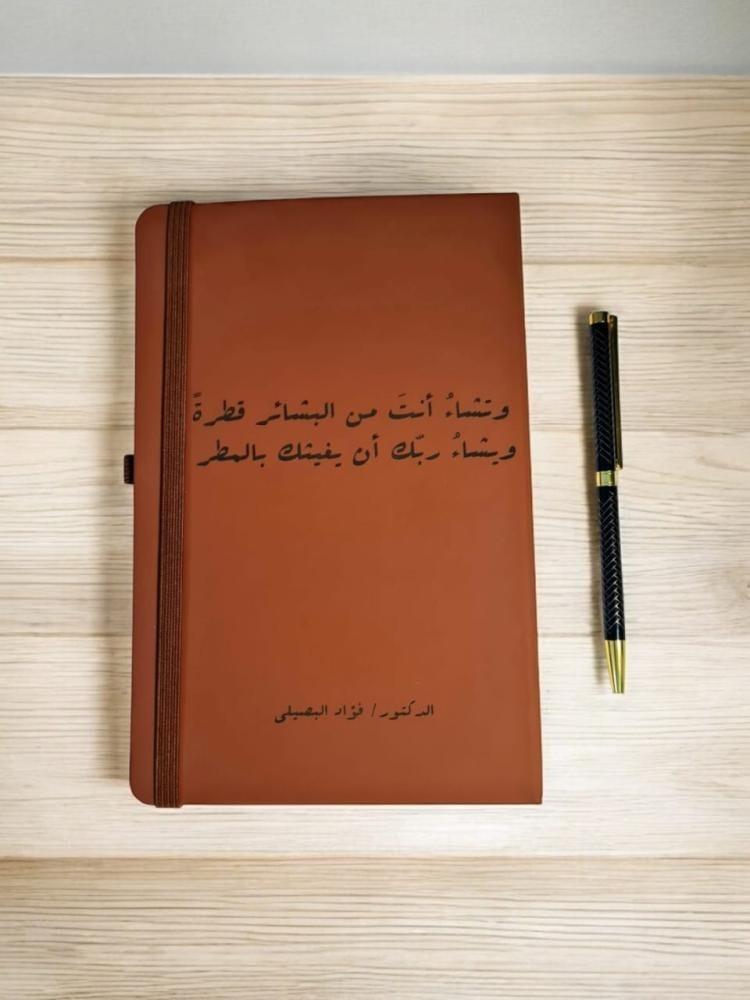 وتشاءُ أنتَ من البشائر قطرةً
ويشاءُ ربّك أن يغيثك بالمطر
الدكتور/ فؤاد البصيلي